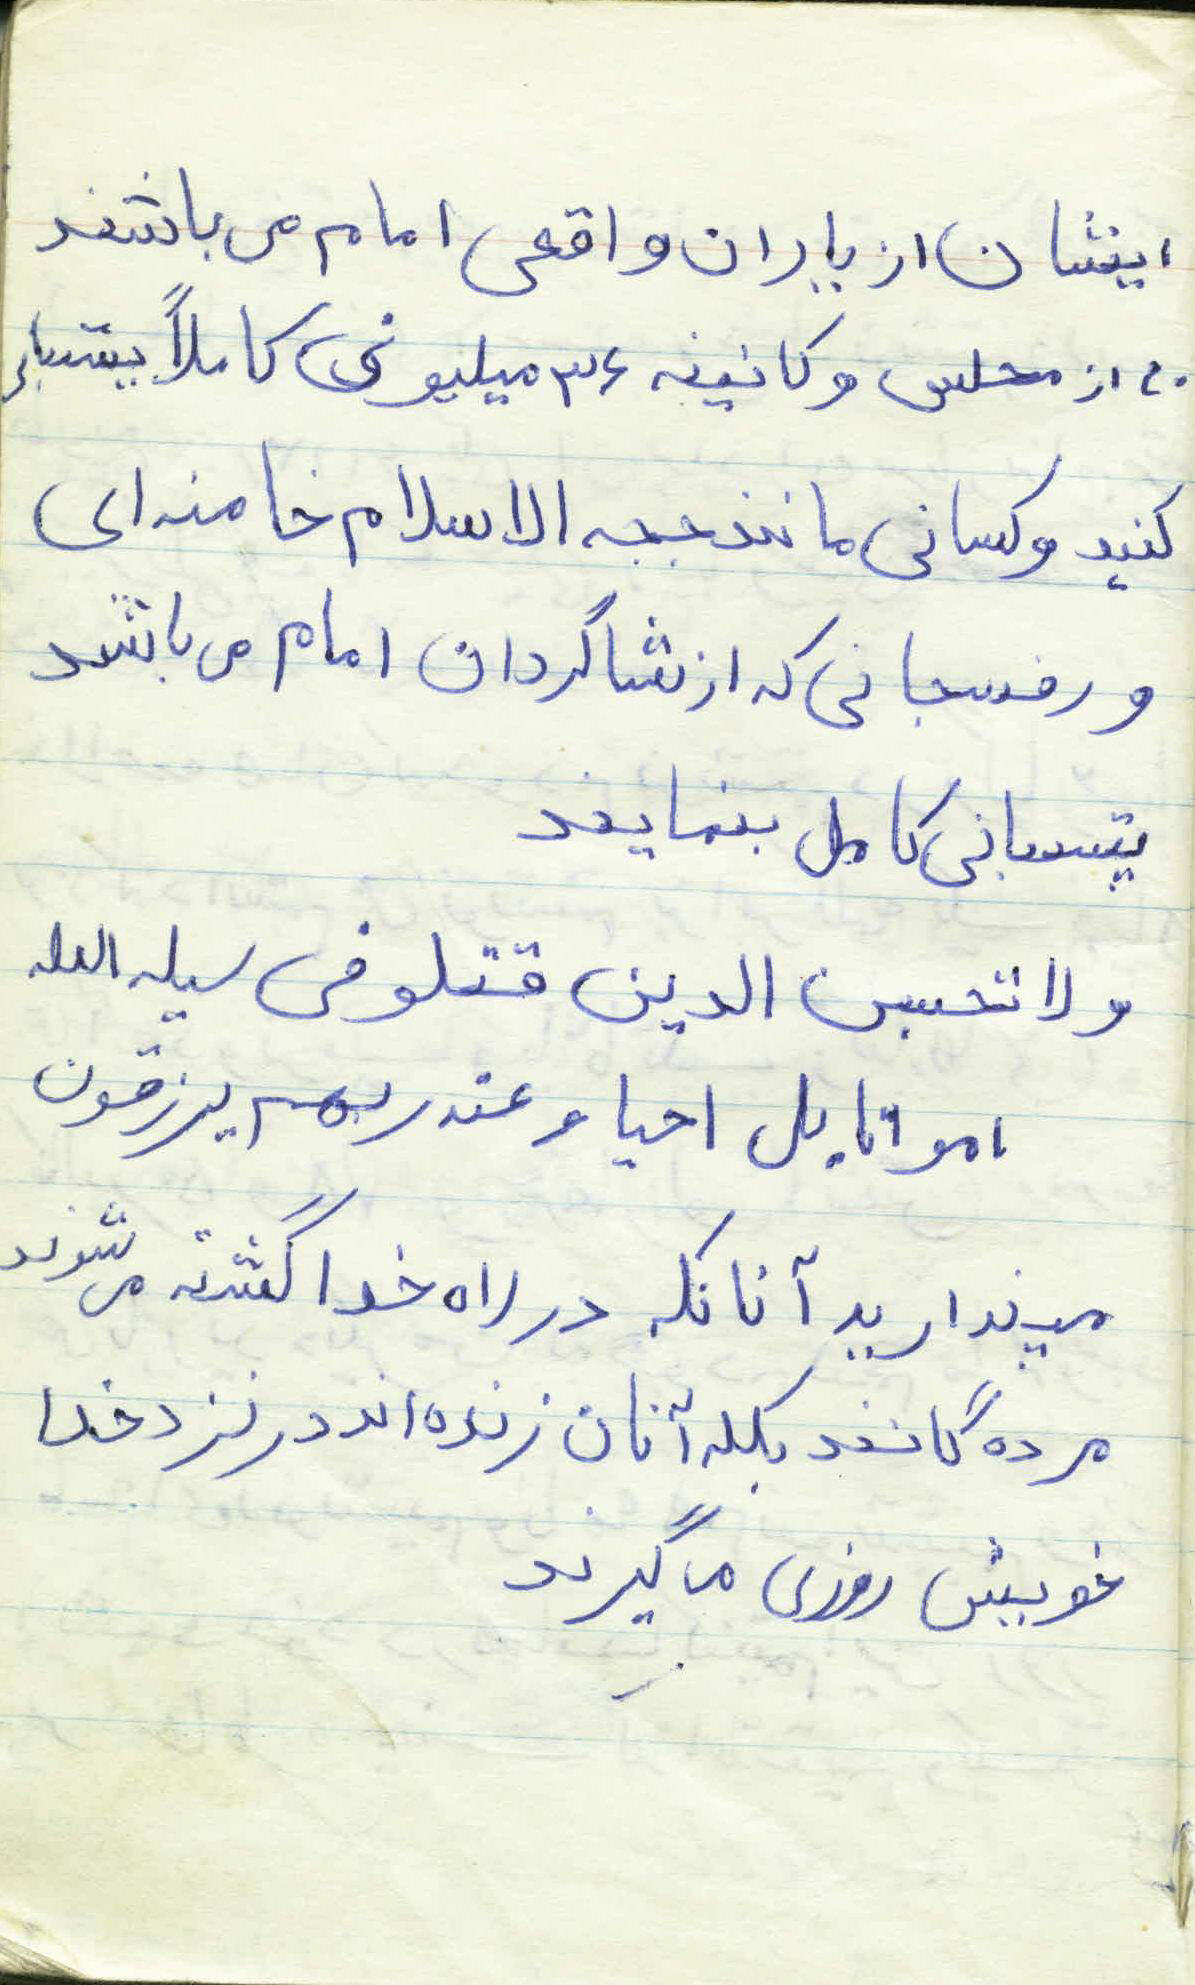 ایشان از یاران واقعی امام می باشند
۲۰ از مجلس و کابینه ۳۶ میلیونی کاملاً پشتیبانی
کنید و کسانی مانند حجه الاسلام خامنه ای
و رفسجانی که از شاگردان امام می باشد
پتسبانی کامل بنمایید
ولا تحسبن الدین قتلو فی سیله الله
امواتا بل احیا و عند ربهم یرزقون
مپندارید آنانکه در راه خدا گشته می شوند
مرده گانند بلکه آنان زنده اند در نزد خدا
خویش روزی می گیرند